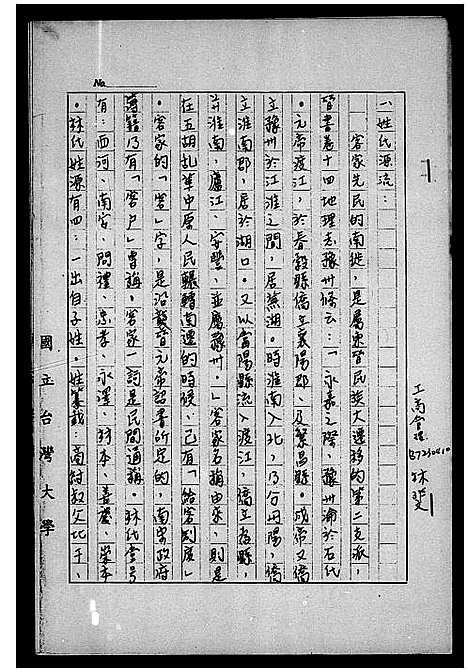 No.
一、姓氏源流：
客家先民的南徙，是屬東晉民族大遷移的第二支派，
晉書卷十四地理志豫州條云：「永嘉之際，豫州淪於石氏
。元帝渡江，於春穀縣僑立襄陽郡，及繁昌縣。成帝又僑
立豫州於江淮之間，居蕪湖。時淮南入北，乃分丹陽，僑
立淮南郡，居於湖口。又以當陽縣流入渡江，僑立為縣，
并淮南，廬江，安豐，並屬豫州。」客家名稱由來，則是
在五胡亂華中原人民輾轉南遷的時候，已有「給客制度」
。客家的「客」字，是沿襲晉元帝詔書所定的，南宋政府
簿籍乃有「客戶」專稱。客家一詞是民間通稱。林氏堂號
有：西河、南安、問禮、忠孝、永澤、林本、嘉慶、崇本
。林氏姓源有四：一出自子姓。姓纂載：商紂叔父比干、
國立台灣大學
工商管理
林斐